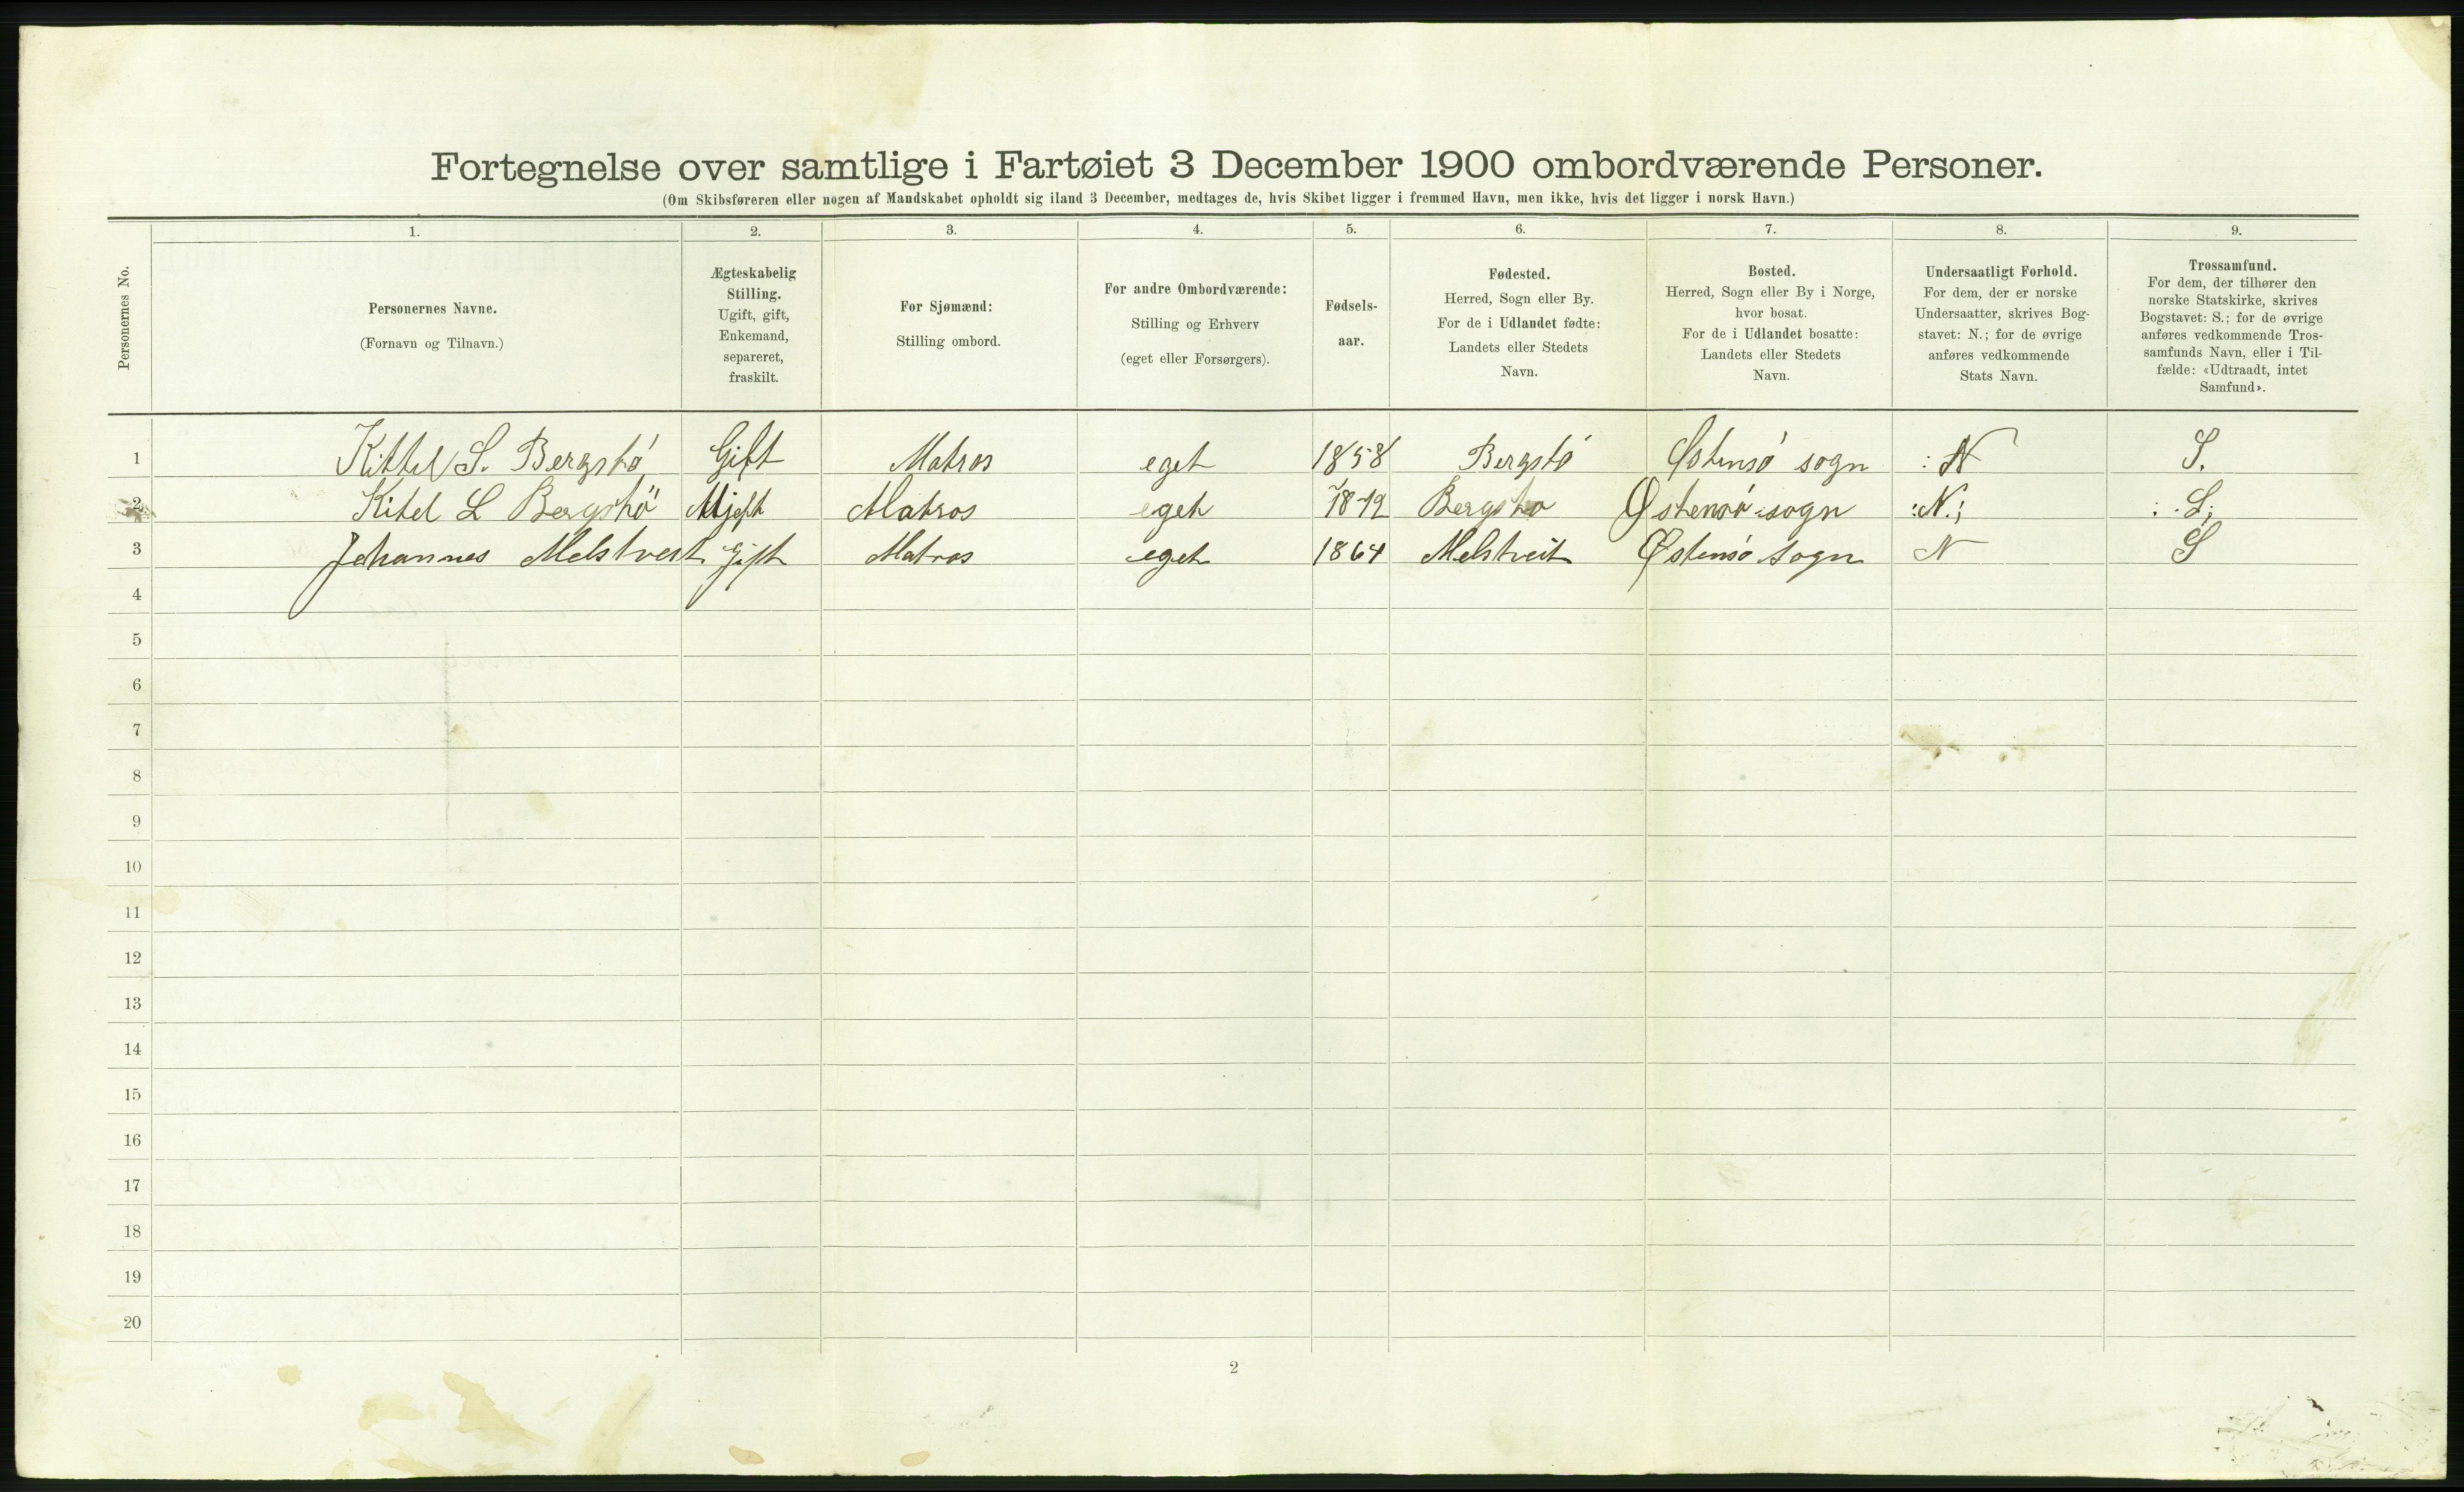 Fortegnelse over samtlige i Fartøiet 3 December 1900 ombordværende Personer.
(Om Skibsføreren eller nogen af Mandskabet opholdt sig iland 3 December, medtages de, hvis Skibet ligger i fremmed Havn, men ikke, hvis det ligger i norsk Havn.)
Personernes No.
1.
Personernes Navne.
(Fornavn og Tilnavn.)
2.
Ægteskabelig
Stilling.
Ugift, gift,
Enkemand,
separeret,
fraskilt.
3.
For Sjømænd:
Stilling ombord.
4.
For andre Ombordværende:
Stilling og Erhverv
(eget eller Forsørgers).
5.
Fødsels-
aar.
6.
Fødested.
Herred, Sogn eller By.
For de i Udlandet fødte:
Landets eller Stedets
Navn.
7.
Bosted.
Herred, Sogn eller By i Norge,
hvor bosat.
For de i Udlandet bosatte:
Landets eller Stedets
Navn.
8.
Undersaatligt Forhold.
For dem, der er norske
Undersaatter, skrives Bog-
stavet: N.; for de øvrige
anføres vedkommende
Stats Navn.
9.
Trossamfund.
For dem, der tilhører den
norske Statskirke, skrives
Bogstavet: S.; for de øvrige
anføres vedkommende Tros-
samfunds Navn, eller i Til-
fælde: «Udtraadt, intet
Samfund».
1 Kittel S. Bergstö Gift Matros eget 1858 Bergstö Østensö sogn : N S.
2 Kitel L Bergstö Matros eget Bergsto Østensö sogn :N.; : S;
3 Johannes Melstveit Gift Matros eget 1864 Melstveit Østensö sogn N S
4
5
6
7
8
9
10
11
12
13
14
15
16
17
18
19
20
2